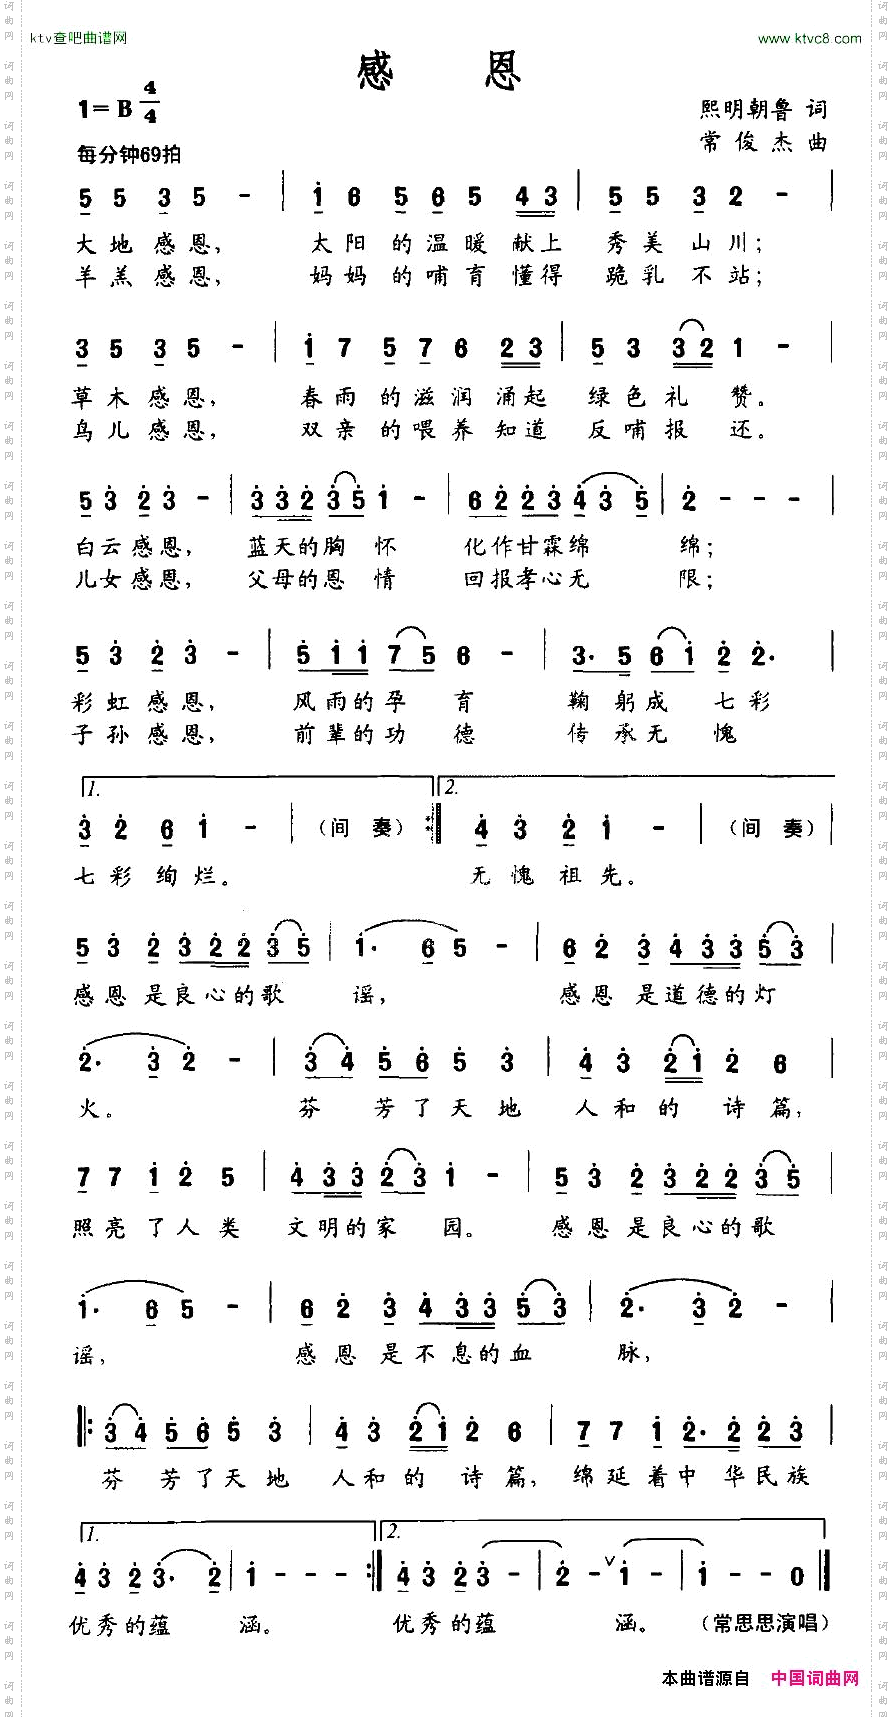 ktv查吧曲谱网 www.ktvc8.com
感 恩
1=B 4/4
熙明朝鲁 词
每分钟69拍
常俊杰 曲
5 5 3 5 - | 1 6 5 6 5 4 3 | 5 5 3 2 - |
大地感恩， 太阳的温暖献上 秀美山川；
羊羔感恩， 妈妈的哺育懂得 跪乳不站；
3 5 3 5 - | 1 7 5 7 6 2 3 | 5 3 3 2 1 - |
草木感恩， 春雨的滋润涌起 绿色礼赞。
鸟儿感恩， 双亲的喂养知道 反哺报还。
5 3 2 3 - | 3 3 2 3 5 1 - | 6 2 2 3 4 3 5 | 2 - - - |
白云感恩， 蓝天的胸怀 化作甘霖绵绵；
儿女感恩， 父母的恩情 回报孝心无限；
5 3 2 3 - | 5 1 1 7 5 6 - | 3· 5 6 1 2 2· |
彩虹感恩， 风雨的孕育 鞠躬成七彩
子孙感恩， 前辈的功德 传承无愧
1. 2.
3 2 6 1 - | （间奏） :| 4 3 2 1 - | （间奏） |
七彩绚烂。 无愧祖先。
5 3 2 3 2 2 3 5 | 1· 6 5 - | 6 2 3 4 3 3 5 3 |
感恩是良心的歌谣， 感恩是道德的灯
2· 3 2 - | 3 4 5 6 5 3 | 4 3 2 1 2 6 |
火。 芬芳了天地 人和的诗篇，
7 7 1 2 5 | 4 3 3 2 3 1 - | 5 3 2 3 2 2 3 5 |
照亮了人类 文明的家园。 感恩是良心的歌
1· 6 5 - | 6 2 3 4 3 3 5 3 | 2· 3 2 - |
谣， 感恩是不息的血脉，
|: 3 4 5 6 5 3 | 4 3 2 1 2 6 | 7 7 1 2· 2 2 3 |
芬芳了天地 人和的诗篇，绵延着中华民族
1. 2.
4 3 2 3· 2 | 1 - - - :| 4 3 2 3 - | 2 - ∨ 1 - | 1 - - 0 ‖
优秀的蕴涵。 优秀的蕴涵。（常思思演唱）
本曲谱源自 中国词曲网